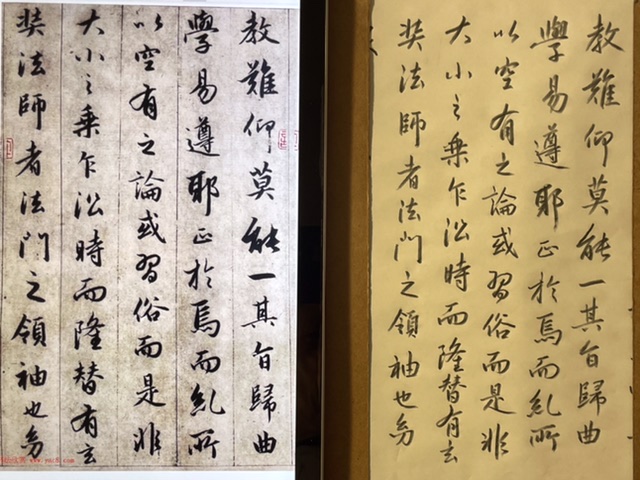 教難仰莫能一其旨歸曲
學易遵耶正於焉而乱所
以空有之論或習俗而是非
大小之乗乍沿時而隆替有玄
奘法師者法門之領袖也幼
教難仰莫能一其旨歸曲
學易遵耶正於焉而乱所
以空有之論或習俗而是非
大小之乗乍沿時而隆替有玄
奘法師者法門之領袖也幼